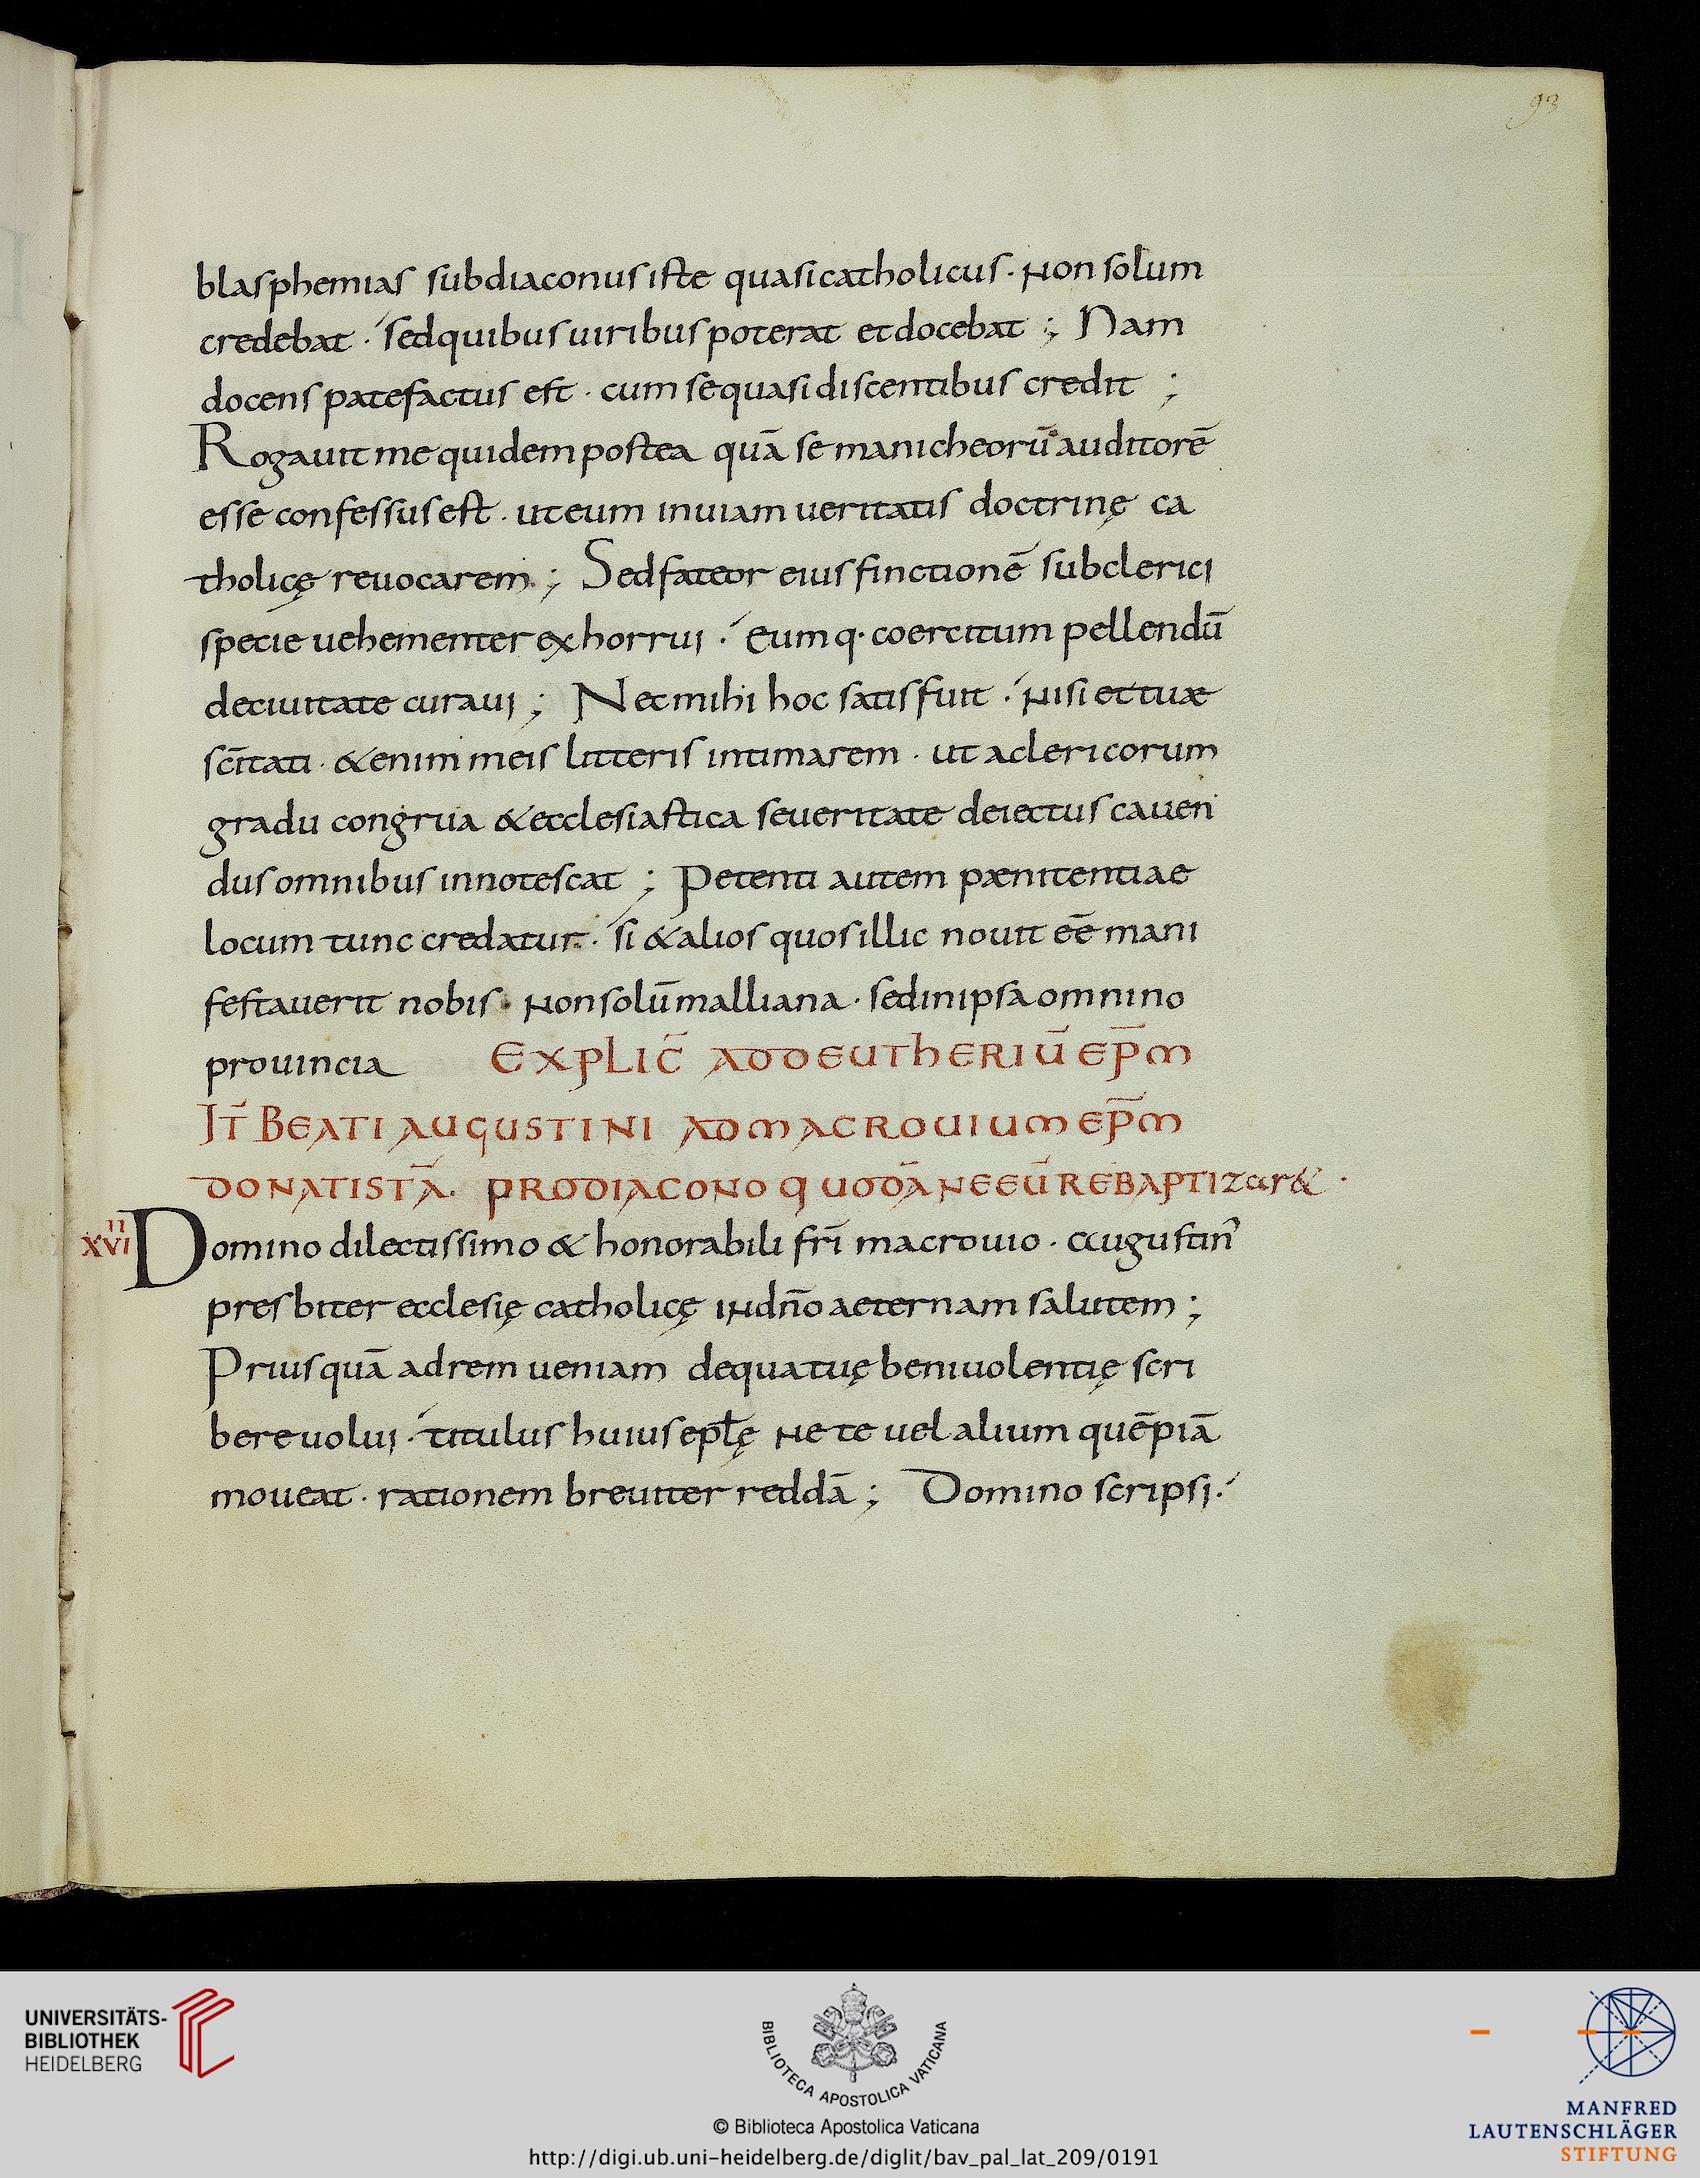 93
blasphemias subdiaconus iste quasi catholicus · Non solum
credebat · sed quibus uiribus poterat et docebat ; Nam
docens patefactus est · cum se quasi discentibus credit ;
Rogauit me quidem postea quā se manicheorū auditorē
esse confessus est · ut eum in uiam ueritatis doctrinę ca
tholicę reuocarem ; Sed fateor eius finctionē sub clerici
specie uehementer exhorrui · eumq· coercitum pellendū
de ciuitate curaui ; Nec mihi hoc satis fuit · Nisi et tuæ
sc̄itati · &enim meis litteris intimarem · ut a clericorum
gradu congrua & ecclesiastica seueritate deiectus cauen
dus omnibus innotescat ; Petenti autem pænitentiae
locum tunc credatur · si & alios quos illic nouit eē mani
festauerit nobis · Non solū malliana · sed in ipsa omnino
prouincia EXPLIC̄ AD DEUTHERIŪ EP̄M
IT̄ BEATI AUGUSTINI AD MACROUIUM EP̄M
DONATISTĀ. PRO DIACONO QUODĀ NE EŪ REBAPTIZAR&·
XVI
II
Domino dilectissimo & honorabili frī macrouio · Augustin᾿
presbiter ecclesię catholicę IN dn̄o aeternam salutem ;
Priusquā ad rem ueniam de qua tuę beniuolentię scri
bere uolui · titulus huius epƚę Ne te uel alium quēpiā
moueat · rationem breuiter reddā ; Domino scripsi ·
UNIVERSITÄTS-
BIBLIOTHEK
HEIDELBERG
BIBLIOTECA APOSTOLICA VATICANA
© Biblioteca Apostolica Vaticana
http://digi.ub.uni-heidelberg.de/diglit/bav_pal_lat_209/0191
MANFRED
LAUTENSCHLÄGER
STIFTUNG